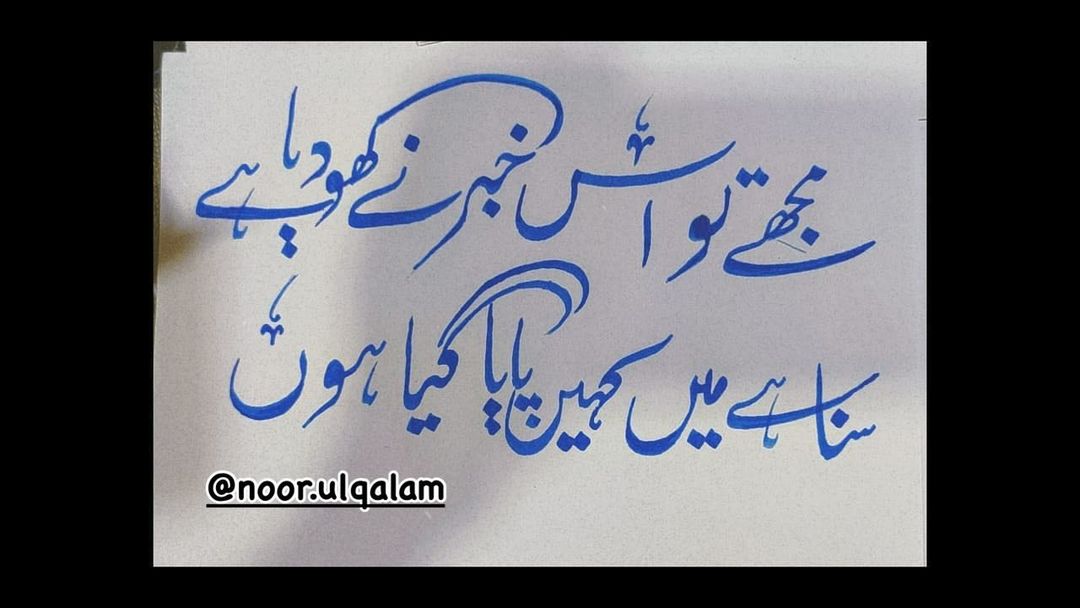 مجھے تو اس خبر نے کھو دیا ہے
سنا ہے میں کہیں پایا گیا ہوں
@noor.ulqalam